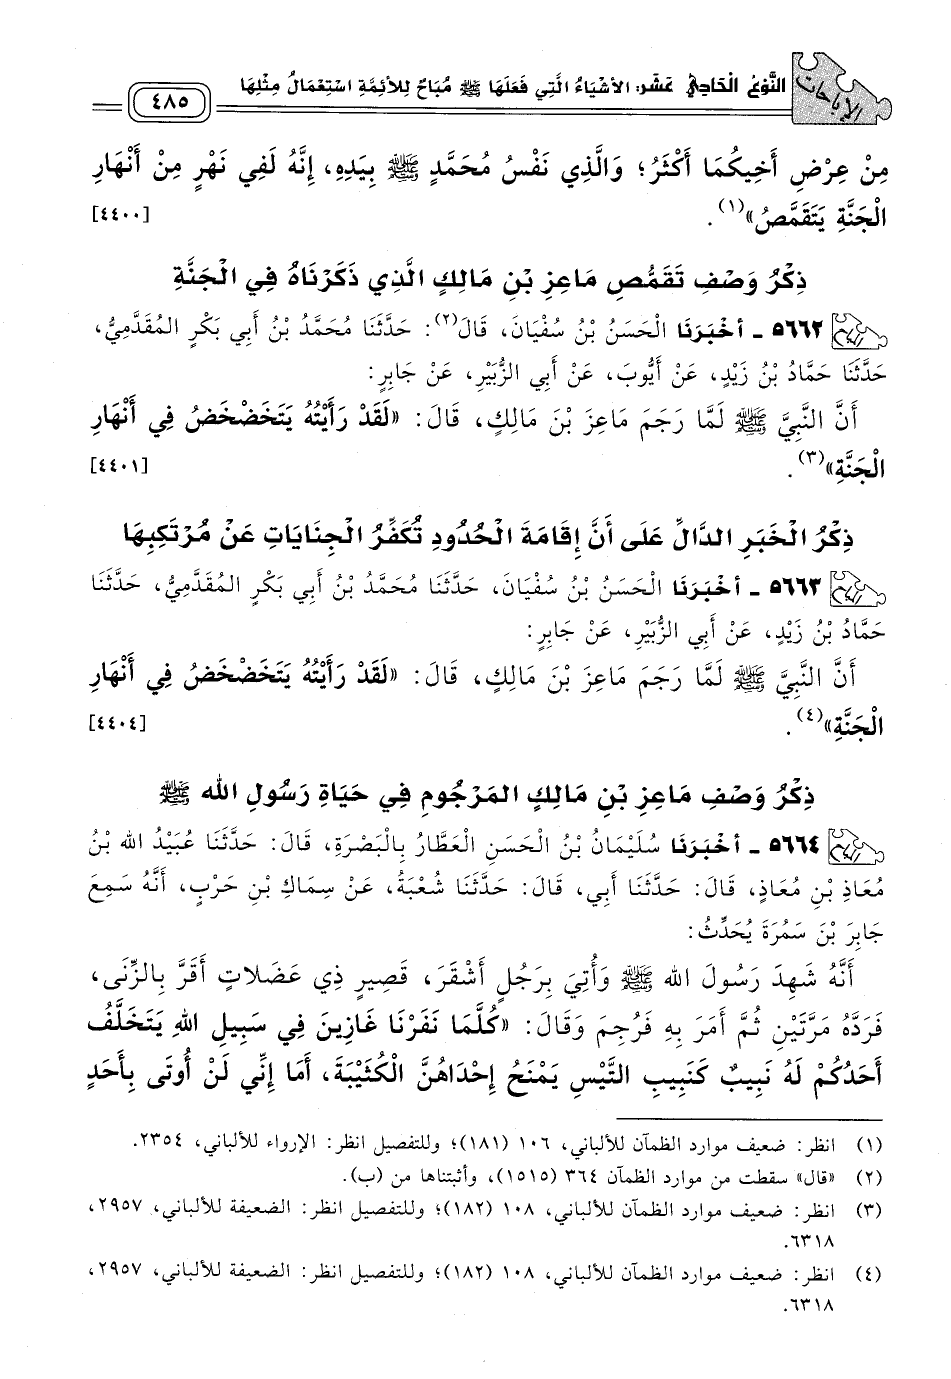 الإباحات
النَّوْعُ الْحَادِي عَشَرَ: الأَشْيَاءُ الَّتِي فَعَلَهَا ﷺ مُبَاحٌ لِلأَئِمَّةِ اسْتِعْمَالُ مِثْلِهَا
٤٨٥
مِنْ عِرْضِ أَخِيكُمَا أَكْثَرُ؛ وَالَّذِي نَفْسُ مُحَمَّدٍ ﷺ بِيَدِهِ، إِنَّهُ لَفِي نَهْرٍ مِنْ أَنْهَارِ
الْجَنَّةِ يَتَقَمَّصُ»(١). [٤٤٠٠]
ذِكْرُ وَصْفِ تَقَمُّصِ مَاعِزِ بْنِ مَالِكٍ الَّذِي ذَكَرْنَاهُ فِي الْجَنَّةِ
٥٦٦٢ - أَخْبَرَنَا الْحَسَنُ بْنُ سُفْيَانَ، قَالَ(٢): حَدَّثَنَا مُحَمَّدُ بْنُ أَبِي بَكْرٍ المُقَدَّمِيُّ،
حَدَّثَنَا حَمَّادُ بْنُ زَيْدٍ، عَنْ أَيُّوبَ، عَنْ أَبِي الزُّبَيْرِ، عَنْ جَابِرٍ:
أَنَّ النَّبِيَّ ﷺ لَمَّا رَجَمَ مَاعِزَ بْنَ مَالِكٍ، قَالَ: «لَقَدْ رَأَيْتُهُ يَتَخَضْخَضُ فِي أَنْهَارِ
الْجَنَّةِ»(٣). [٤٤٠١]
ذِكْرُ الْخَبَرِ الدَّالِّ عَلَى أَنَّ إِقَامَةَ الْحُدُودِ تُكَفِّرُ الْجِنَايَاتِ عَنْ مُرْتَكِبِهَا
٥٦٦٣ - أَخْبَرَنَا الْحَسَنُ بْنُ سُفْيَانَ، حَدَّثَنَا مُحَمَّدُ بْنُ أَبِي بَكْرٍ المُقَدَّمِيُّ، حَدَّثَنَا
حَمَّادُ بْنُ زَيْدٍ، عَنْ أَبِي الزُّبَيْرِ، عَنْ جَابِرٍ:
أَنَّ النَّبِيَّ ﷺ لَمَّا رَجَمَ مَاعِزَ بْنَ مَالِكٍ، قَالَ: «لَقَدْ رَأَيْتُهُ يَتَخَضْخَضُ فِي أَنْهَارِ
الْجَنَّةِ»(٤). [٤٤٠٤]
ذِكْرُ وَصْفِ مَاعِزِ بْنِ مَالِكٍ المَرْجُومِ فِي حَيَاةِ رَسُولِ اللَّهِ ﷺ
٥٦٦٤ - أَخْبَرَنَا سُلَيْمَانُ بْنُ الْحَسَنِ الْعَطَّارُ بِالْبَصْرَةِ، قَالَ: حَدَّثَنَا عُبَيْدُ اللهِ بْنُ
مُعَاذِ بْنِ مُعَاذٍ، قَالَ: حَدَّثَنَا أَبِي، قَالَ: حَدَّثَنَا شُعْبَةُ، عَنْ سِمَاكِ بْنِ حَرْبٍ، أَنَّهُ سَمِعَ
جَابِرَ بْنَ سَمُرَةَ يُحَدِّثُ:
أَنَّهُ شَهِدَ رَسُولَ اللهِ ﷺ وَأُتِيَ بِرَجُلٍ أَشْقَرَ، قَصِيرٍ ذِي عَضَلَاتٍ أَقَرَّ بِالزِّنَى،
فَرَدَّهُ مَرَّتَيْنِ ثُمَّ أَمَرَ بِهِ فَرُجِمَ وَقَالَ: «كُلَّمَا نَفَرْنَا غَازِينَ فِي سَبِيلِ اللهِ يَتَخَلَّفُ
أَحَدُكُمْ لَهُ نَبِيبٌ كَنَبِيبِ التَّيْسِ يَمْنَحُ إِحْدَاهُنَّ الْكُثْبَةَ، أَمَا إِنِّي لَنْ أُوتَى بِأَحَدٍ
(١) انظر: ضعيف موارد الظمآن للألباني، ١٠٦ (١٨١)؛ وللتفصيل انظر: الإرواء للألباني، ٢٣٥٤.
(٢) «قال» سقطت من موارد الظمآن ٣٦٤ (١٥١٥)، وأثبتناها من (ب).
(٣) انظر: ضعيف موارد الظمآن للألباني، ١٠٨ (١٨٢)؛ وللتفصيل انظر: الضعيفة للألباني، ٢٩٥٧،
٦٣١٨.
(٤) انظر: ضعيف موارد الظمآن للألباني، ١٠٨ (١٨٢)؛ وللتفصيل انظر: الضعيفة للألباني، ٢٩٥٧،
٦٣١٨.